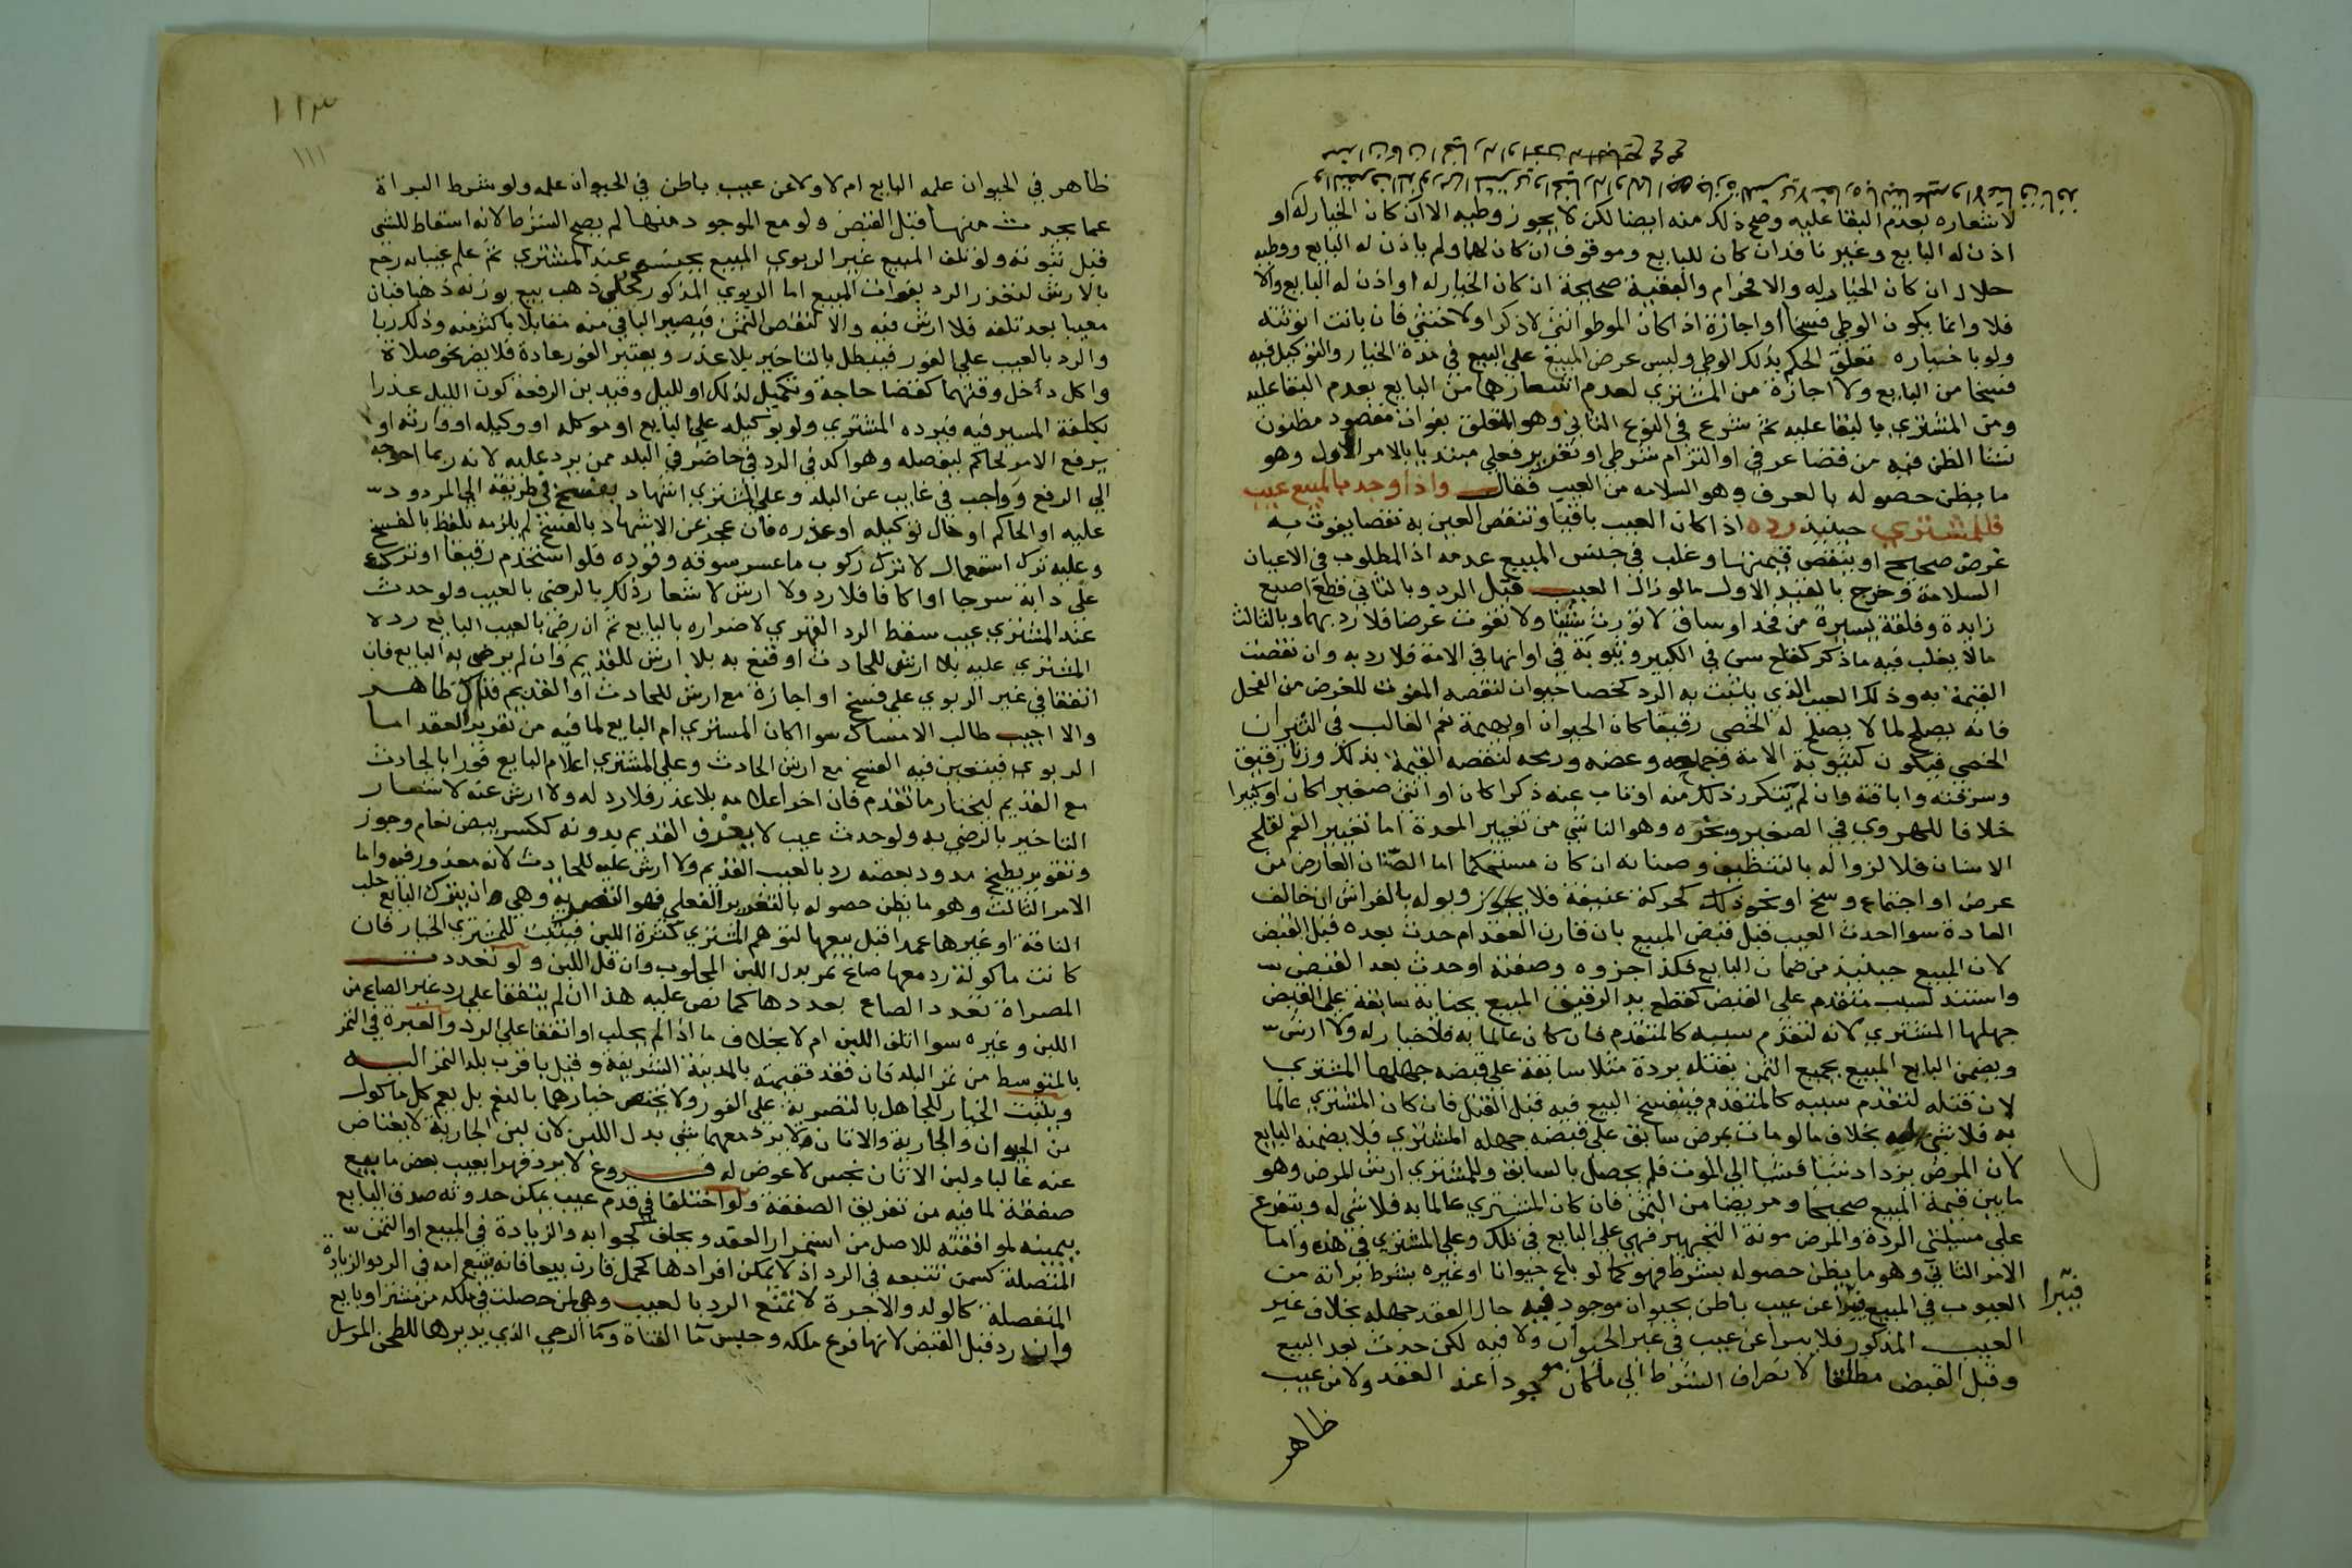 لاشعاره بعدم البقا عليه وصح ذلك منه ايضا لكن لا يجوز وطيه الا ان كان الخيار له او
اذن له البايع وغير نافذ ان كان للبايع وموقوف ان كان لهما ولم ياذن له البايع ووطيه
حلال ان كان الخيار له والا فحرام والبقية صحيحة ان كان الخيار له او اذن له البايع والا
فلا وانما يكون الوطي فسخا او اجازة اذا كان الموطو انثى لا ذكرا ولا خنثى فان بانت انوثته
ولو باخباره تعلق الحكم بذلك الوطي وليس عرض المبيع على البيع في مدة الخيار والتوكيل فيه
فسخا من البايع ولا اجازة من المشتري لعدم اشعارهما من البايع بعدم البقا عليه
ومن المشتري بالبقا عليه ثم شرع في النوع الثاني وهو المتعلق بفوات مقصود مظنون
نشا الظن فيه من قضا عرفي او التزام شرطي او تغرير فعلي مبتديا بالامر الاول وهو
ما يظن حصوله بالعرف وهو السلامه من العيب فقال واذا وجد بالمبيع عيب
فللمشتري حينيذ رده اذا كان العيب باقيا وتنقص العين به نقصا يفوت به
غرض صحيح او ينقص قيمتها وغلب في جنس المبيع عدمه اذ المطلوب في الاعيان
السلامة وخرج بالقيد الاول مالو زال العيب قبل الرد وبالثاني قطع اصبع
زايدة وفلقة يسيرة من فخذ او ساق لا تورث شينا ولا تفوت غرضا فلا رد بهما وبالثالث
مالا يغلب فيه ما ذكر كقلع سن في الكبير وثيوبة في اوانها في الامة فلا رد به وان نقصت
القيمة به وذلك العيب الذي يثبت به الرد كخصا حيوان لنقصه المفوت للغرض من الفحل
فانه يصلح لما لا يصلح له الخصي رقيقا كان الحيوان او بهيمة نعم الغالب في الثيران
الخصي فيكون كثيوبة الامة وجماحه وعضه ورمحه لنقصه القيمة بذلك وزنا رقيق
وسرقته واباقه وان لم يتكرر ذلك منه او تاب عنه ذكرا كان او انثى صغيرا كان او كبيرا
خلافا للهروي في الصغير وبخره وهو الناشي من تغيير المعدة اما تغيير الفم لقلح
الاسنان فلا لزواله بالتنظيف وصنانه ان كان مستحكما اما الصنان العارض من
عرض او اجتماع وسخ او نحو ذلك كحركة عنيفة فلا وبوله بالفراش ان خالف
العادة سوا احدث العيب قبل قبض المبيع بان قارن العقد ام حدث بعده قبل القبض
لان المبيع حينيذ من ضمان البايع فكذا جزوه وصفته او حدث بعد القبض
واستند لسبب متقدم على القبض كقطع يد الرقيق المبيع بجناية سابقة على القبض
جهلها المشتري لانه لتقدم سببه كالمتقدم فان كان عالما به فلا خيار له ولا ارش
ويضمن البايع المبيع بجميع الثمن بقتله بردة مثلا سابقة على قبضه جهلها المشتري
لان قتله لتقدم سببه كالمتقدم فينفسخ البيع فيه قبل القتل فان كان المشتري عالما
به فلا شي له بخلاف مالو مات بمرض سابق على قبضه جهله المشتري فلا يضمنه البايع
لان المرض يزداد شيا فشيا الى الموت فلم يحصل بالسابق وللمشتري ارش المرض وهو
مابين قيمة المبيع صحيحا ومريضا من الثمن فان كان المشتري عالما به فلا شي له ويتفرع
على مسيلتي الردة والمرض مونة التجهيز فهي على البايع في تلك وعلى المشتري في هذه واما
الامر الثاني وهو ما يظن حصوله بشرط فهو كما لو باع حيوانا او غيره بشرط براته من
العيوب في المبيع فيبرا عن عيب باطن بحيوان موجود فيه حال العقد جهله بخلاف غير
العيب المذكور فلا يبرا عن عيب في غير الحيوان ولا فيه لكن حدث بعد البيع
وقبل القبض مطلقا لانصراف الشرط الى ما كان موجودا عند العقد ولا من عيب
فيبرا
ظاهر
١١٣
١١١
ظاهر في الحيوان علمه البايع ام لا ولا عن عيب باطن في الحيوان علمه ولو شرط البراة
عما يحدث منها قبل القبض ولو مع الموجود منها لم يصح الشرط لانه اسقاط للشي
قبل ثبوته ولو تلف المبيع غير الربوي المبيع بجنسه عند المشتري ثم علم عيبا به رجع
بالارش لتعذر الرد بفوات المبيع اما الربوي المذكور كحلي ذهب بيع بوزنه ذهبا فبان
معيبا بعد تلفه فلا ارش فيه والا لنقص الثمن فيصير الباقي منه مقابلا باكثر منه وذلك ربا
والرد بالعيب على الفور فيبطل بالتاخير بلا عذر ويعتبر الفور عادة فلا يضر نحو صلاة
واكل دخل وقتهما كقضا حاجة وتكميل لذلك او لليل وقيد بن الرفعة كون الليل عذرا
بكلفة المسير فيه فيرده المشتري ولو بوكيله على البايع او موكله او وكيله او وارثه او
يرفع الامر لحاكم ليفصله وهو اكد في الرد في حاضر في البلد ممن يرد عليه لانه ربما احوجه
الى الرفع وواجب في غايب عن البلد وعلى المشتري اشهاد بفسخ في طريقه الى المردود
عليه او الحاكم او حال توكيله او عذره فان عجز عن الاشهاد بالفسخ لم يلزمه تلفظ بالفسخ
وعليه ترك استعمال لا ترك ركوب ما عسر سوقه وقوده فلو استخدم رقيقا او ترك
على دابة سرجا او اكافا فلا رد ولا ارش لاشعار ذلك بالرضى بالعيب ولو حدث
عند المشتري عيب سقط الرد القهري لاضراره بالبايع ثم ان رضى بالعيب البايع رده
المشتري عليه بلا ارش للحادث او قنع به بلا ارش للقديم وان لم يرض به البايع فان
اتفقا في غير الربوي على فسخ او اجازة مع ارش للحادث او القديم فذاك ظاهر
والا اجيب طالب الامساك سوا اكان المشتري ام البايع لما فيه من تقرير العقد اما
الربوي فيتعين فيه الفسخ مع ارش الحادث وعلى المشتري اعلام البايع فورا بالحادث
مع القديم ليختار ما تقدم فان اخر اعلامه بلا عذر فلا رد له ولا ارش عنه لاشعار
التاخير بالرضى به ولو حدث عيب لا يعرف القديم بدونه ككسر بيض نعام وجوز
وتقوير بطيخ مدود بعضه رد بالعيب القديم ولا ارش عليه للحادث لانه معذور فيه واما
الامر الثالث وهو ما يظن حصوله بالتغرير الفعلي فهو التصرية وهي ان يترك البايع حلب
الناقة او غيرها عمدا قبل بيعها ليوهم المشتري كثرة اللبن فيثبت للمشتري الخيار فان
كانت ماكولة رد معها صاع تمر بدل اللبن المحلوب وان قل اللبن ولو تعددت
المصراة تعدد الصاع بعددها كما نص عليه هذا ان لم يتفقا على رد غير الصاع من
اللبن وغيره سوا اتلف اللبن ام لا بخلاف ما اذا لم يحلب او اتفقا على الرد والعبرة في التمر
بالمتوسط من تمر البلد فان فقد فقيمته بالمدينة الشريفة وقيل باقرب بلد التمر اليه
ويثبت الخيار للجاهل بالتصرية على الفور ولا يختص خيارها بالنعم بل يعم كل ماكول
من الحيوان والجارية والاتان ولا يرد معهما شي بدل اللبن لان لبن الجارية لا يعتاض
عنه غالبا ولبن الاتان نجس لا عوض له فروع لا يرد قهرا بعيب بعض ما بيع
صفقة لما فيه من تفريق الصفقة ولو اختلفا في قدم عيب يمكن حدوثه صدق البايع
بيمينه لموافقته للاصل من استمرار العقد ويحلف كجوابه والزيادة في المبيع او الثمن
المتصلة كسمن تتبعه في الرد اذ لا يمكن افرادها كحمل قارن بيعا فانه يتبع امه في الرد والزيادة
المنفصلة كالولد والاجرة لا تمنع الرد بالعيب وهي لمن حصلت في ملكه من مشتر او بايع
وان رد قبل القبض لانها فرع ملكه وحبس ما القناة وما الرحى الذي يديرها للطحن المرسل